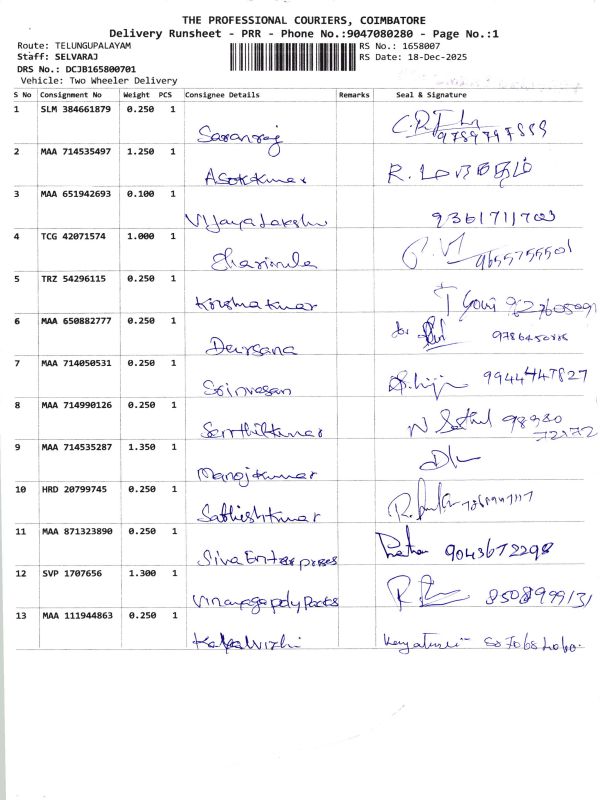 THE PROFESSIONAL COURIERS, COIMBATORE
Delivery Runsheet - PRR - Phone No.:9047080280 - Page No.:1
Route: TELUNGUPALAYAM RS No.: 1658007
Staff: SELVARAJ RS Date: 18-Dec-2025
DRS No.: DCJB165800701
Vehicle: Two Wheeler Delivery
S No Consignment No Weight PCS Consignee Details Remarks Seal & Signature
1 SLM 384661879 0.250 1
Saranraj 9789797889
2 MAA 714535497 1.250 1
Asokkumar R.
3 MAA 651942693 0.100 1
Vijayalakshmi
4 TCG 42071574 1.000 1
9655755501
5 TRZ 54296115 0.250 1
Krishnakumar
6 MAA 650882777 0.250 1
Darsana
7 MAA 714050531 0.250 1
Srinivasan 9944447827
8 MAA 714990126 0.250 1
Senthilkumar 98980
72172
9 MAA 714535287 1.350 1
Manojkumar
10 HRD 20799745 0.250 1
Sathishkumar
11 MAA 871323890 0.250 1
Siva Enterprises 9043672298
12 SVP 1707656 1.300 1
Vinayaga poly Packs 8508999131
13 MAA 111944863 0.250 1